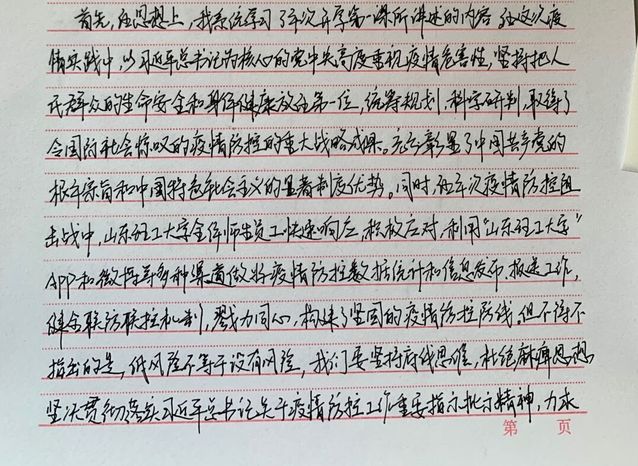 首先,在思想上,我系统学习了本次开学第一课所讲述的内容 在这次疫
情实践中,以习近平总书记为核心的党中央高度重视疫情危害性,坚持把人
民群众的生命安全和身体健康放在第一位,统筹规划,科学研判,取得了
令国际社会惊叹的疫情防控的重大战略成果。充分彰显了中国共产党的
根本宗旨和中国特色社会主义的显著制度优势。同时,在本次疫情防控阻
击战中,山东理工大学全体师生员工快速响应,积极应对,利用“山东理工大学”
APP和微博等多种渠道做好疫情防控数据统计和信息发布、报送工作,
健全联防联控机制,戮力同心,构建了坚固的疫情防控防线。但不得不
指出的是,低风险不等于没有风险,我们要坚持底线思维,杜绝麻痹思想
坚决贯彻落实习近平总书记关于疫情防控工作重要指示批示精神,力求
第 页